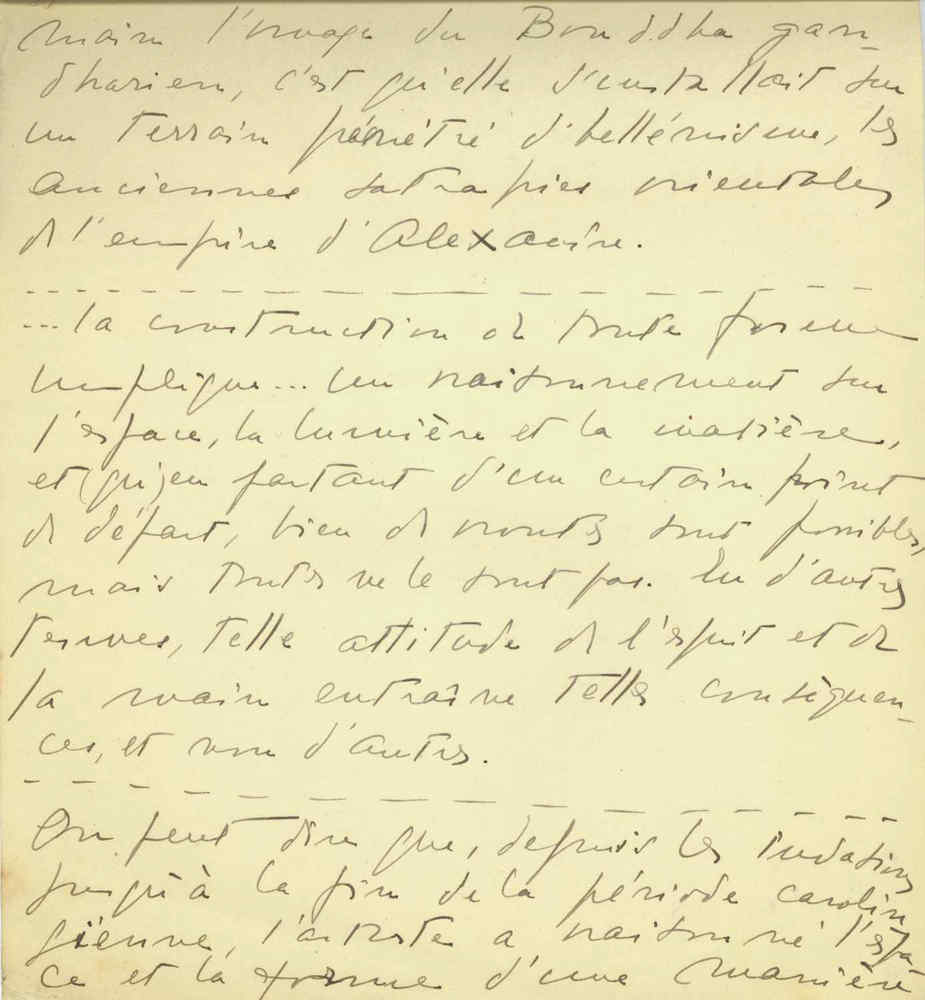 main l'image du Bouddha gan-
dharien, c'est qu'elle s'installait sur
un terrain pénétré d'hellénisme, les
anciennes satrapies orientales
de l'empire d'Alexandre.
...la construction de toute forme
implique... un raisonnement sur
l'espace, la lumière et la matière,
et (qu')en partant d'un certain point
de départ, bien de routes sont possibles,
mais toutes ne le sont pas. En d'autres
termes, telle attitude de l'esprit et de
la main entraîne telles conséquen-
ces, et non d'autres.
On peut dire que, depuis les
jusqu'à la fin de la période carolin-
gienne, l'artiste a raisonné l'espa-
ce et la forme d'une manière